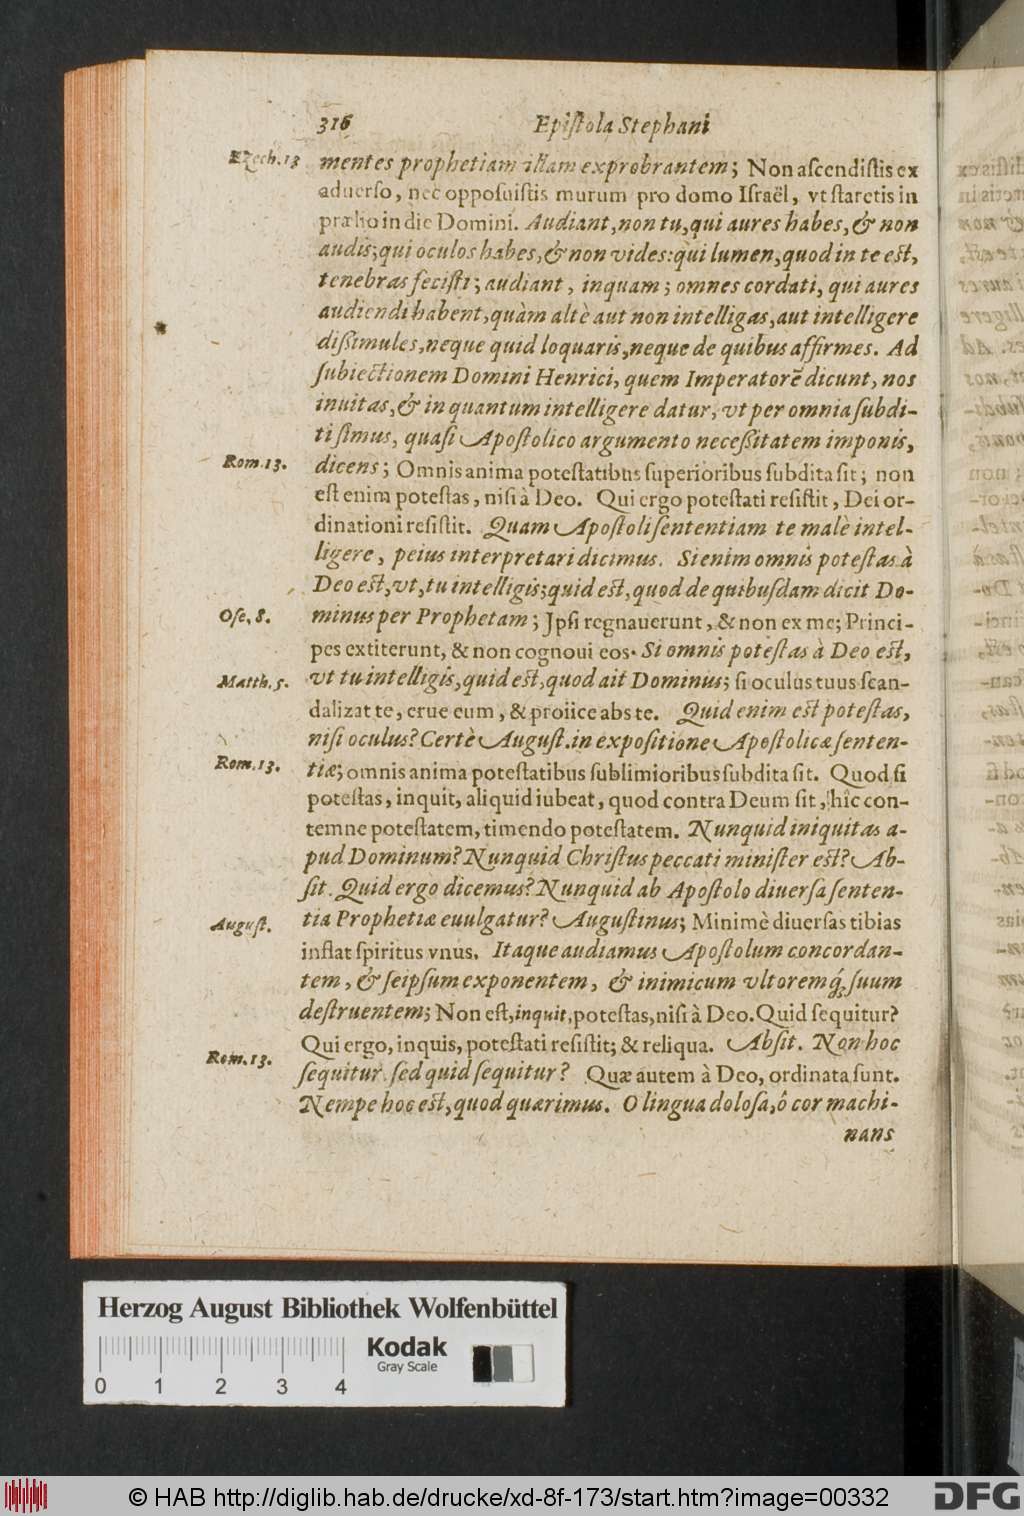 316 Epistola Stephani
Ezech. 13 mentes prophetiam istam exprobrantem; Non ascendistis ex
aduerso, nec opposuistis murum pro domo Israël, vt staretis in
prælio in die Domini. Audiant, non tu, qui aures habes, & non
audis; qui oculos habes, & non vides: qui lumen, quod in te est,
tenebras fecisti; audiant, inquam; omnes cordati, qui aures
audiendi habent, quàm altè aut non intelligas, aut intelligere
dißimules, neque quid loquaris, neque de quibus affirmes. Ad
subiectionem Domini Henrici, quem Imperatorẽ dicunt, nos
inuitas, & in quantum intelligere datur, vt per omnia subdi-
ti simus, quasi Apostolico argumento neceßitatem imponis,
Rom. 13. dicens; Omnis anima potestatibus superioribus subdita sit; non
est enim potestas, nisi à Deo. Qui ergo potestati resistit, Dei or-
dinationi resistit. Quam Apostoli sententiam te malè intel-
ligere, peius interpretari dicimus. Si enim omnis potestas à
Deo est, vt, tu intelligis; quid est, quod de quibusdam dicit Do-
Ose. 8. minus per Prophetam; Ipsi regnauerunt, & non ex me; Princi-
pes extiterunt, & non cognoui eos. Si omnis potestas à Deo est,
Matth. 5. vt tu intelligis, quid est, quod ait Dominus; si oculus tuus scan-
dalizat te, erue eum, & proiice abs te. Quid enim est potestas,
nisi oculus? Certè August. in expositione Apostolicæ senten-
Rom. 13. tiæ; omnis anima potestatibus sublimioribus subdita sit. Quod si
potestas, inquit, aliquid iubeat, quod contra Deum sit, hîc con-
temne potestatem, timendo potestatem. Nunquid iniquitas a-
pud Dominum? Nunquid Christus peccati minister est? Ab-
sit. Quid ergo dicemus? Nunquid ab Apostolo diuersa senten-
August. tia Prophetiæ euulgatur? Augustinus; Minimè diuersas tibias
inflat spiritus vnus. Itaque audiamus Apostolum concordan-
tem, & seipsum exponentem, & inimicum vltoremq́; suum
destruentem; Non est, inquit, potestas, nisi à Deo. Quid sequitur?
Qui ergo, inquis, potestati resistit; & reliqua. Absit. Non hoc
Rom. 13. sequitur. sed quid sequitur? Quæ autem à Deo, ordinata sunt.
Nempe hoc est, quod quærimus. O lingua dolosa, ô cor machi-
nans
Herzog August Bibliothek Wolfenbüttel
Kodak
Gray Scale
0 1 2 3 4
© HAB http://diglib.hab.de/drucke/xd-8f-173/start.htm?image=00332
DFG